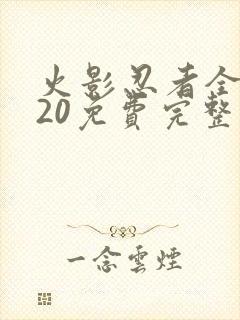 火影忍者全
20免費完整
一念雲煙